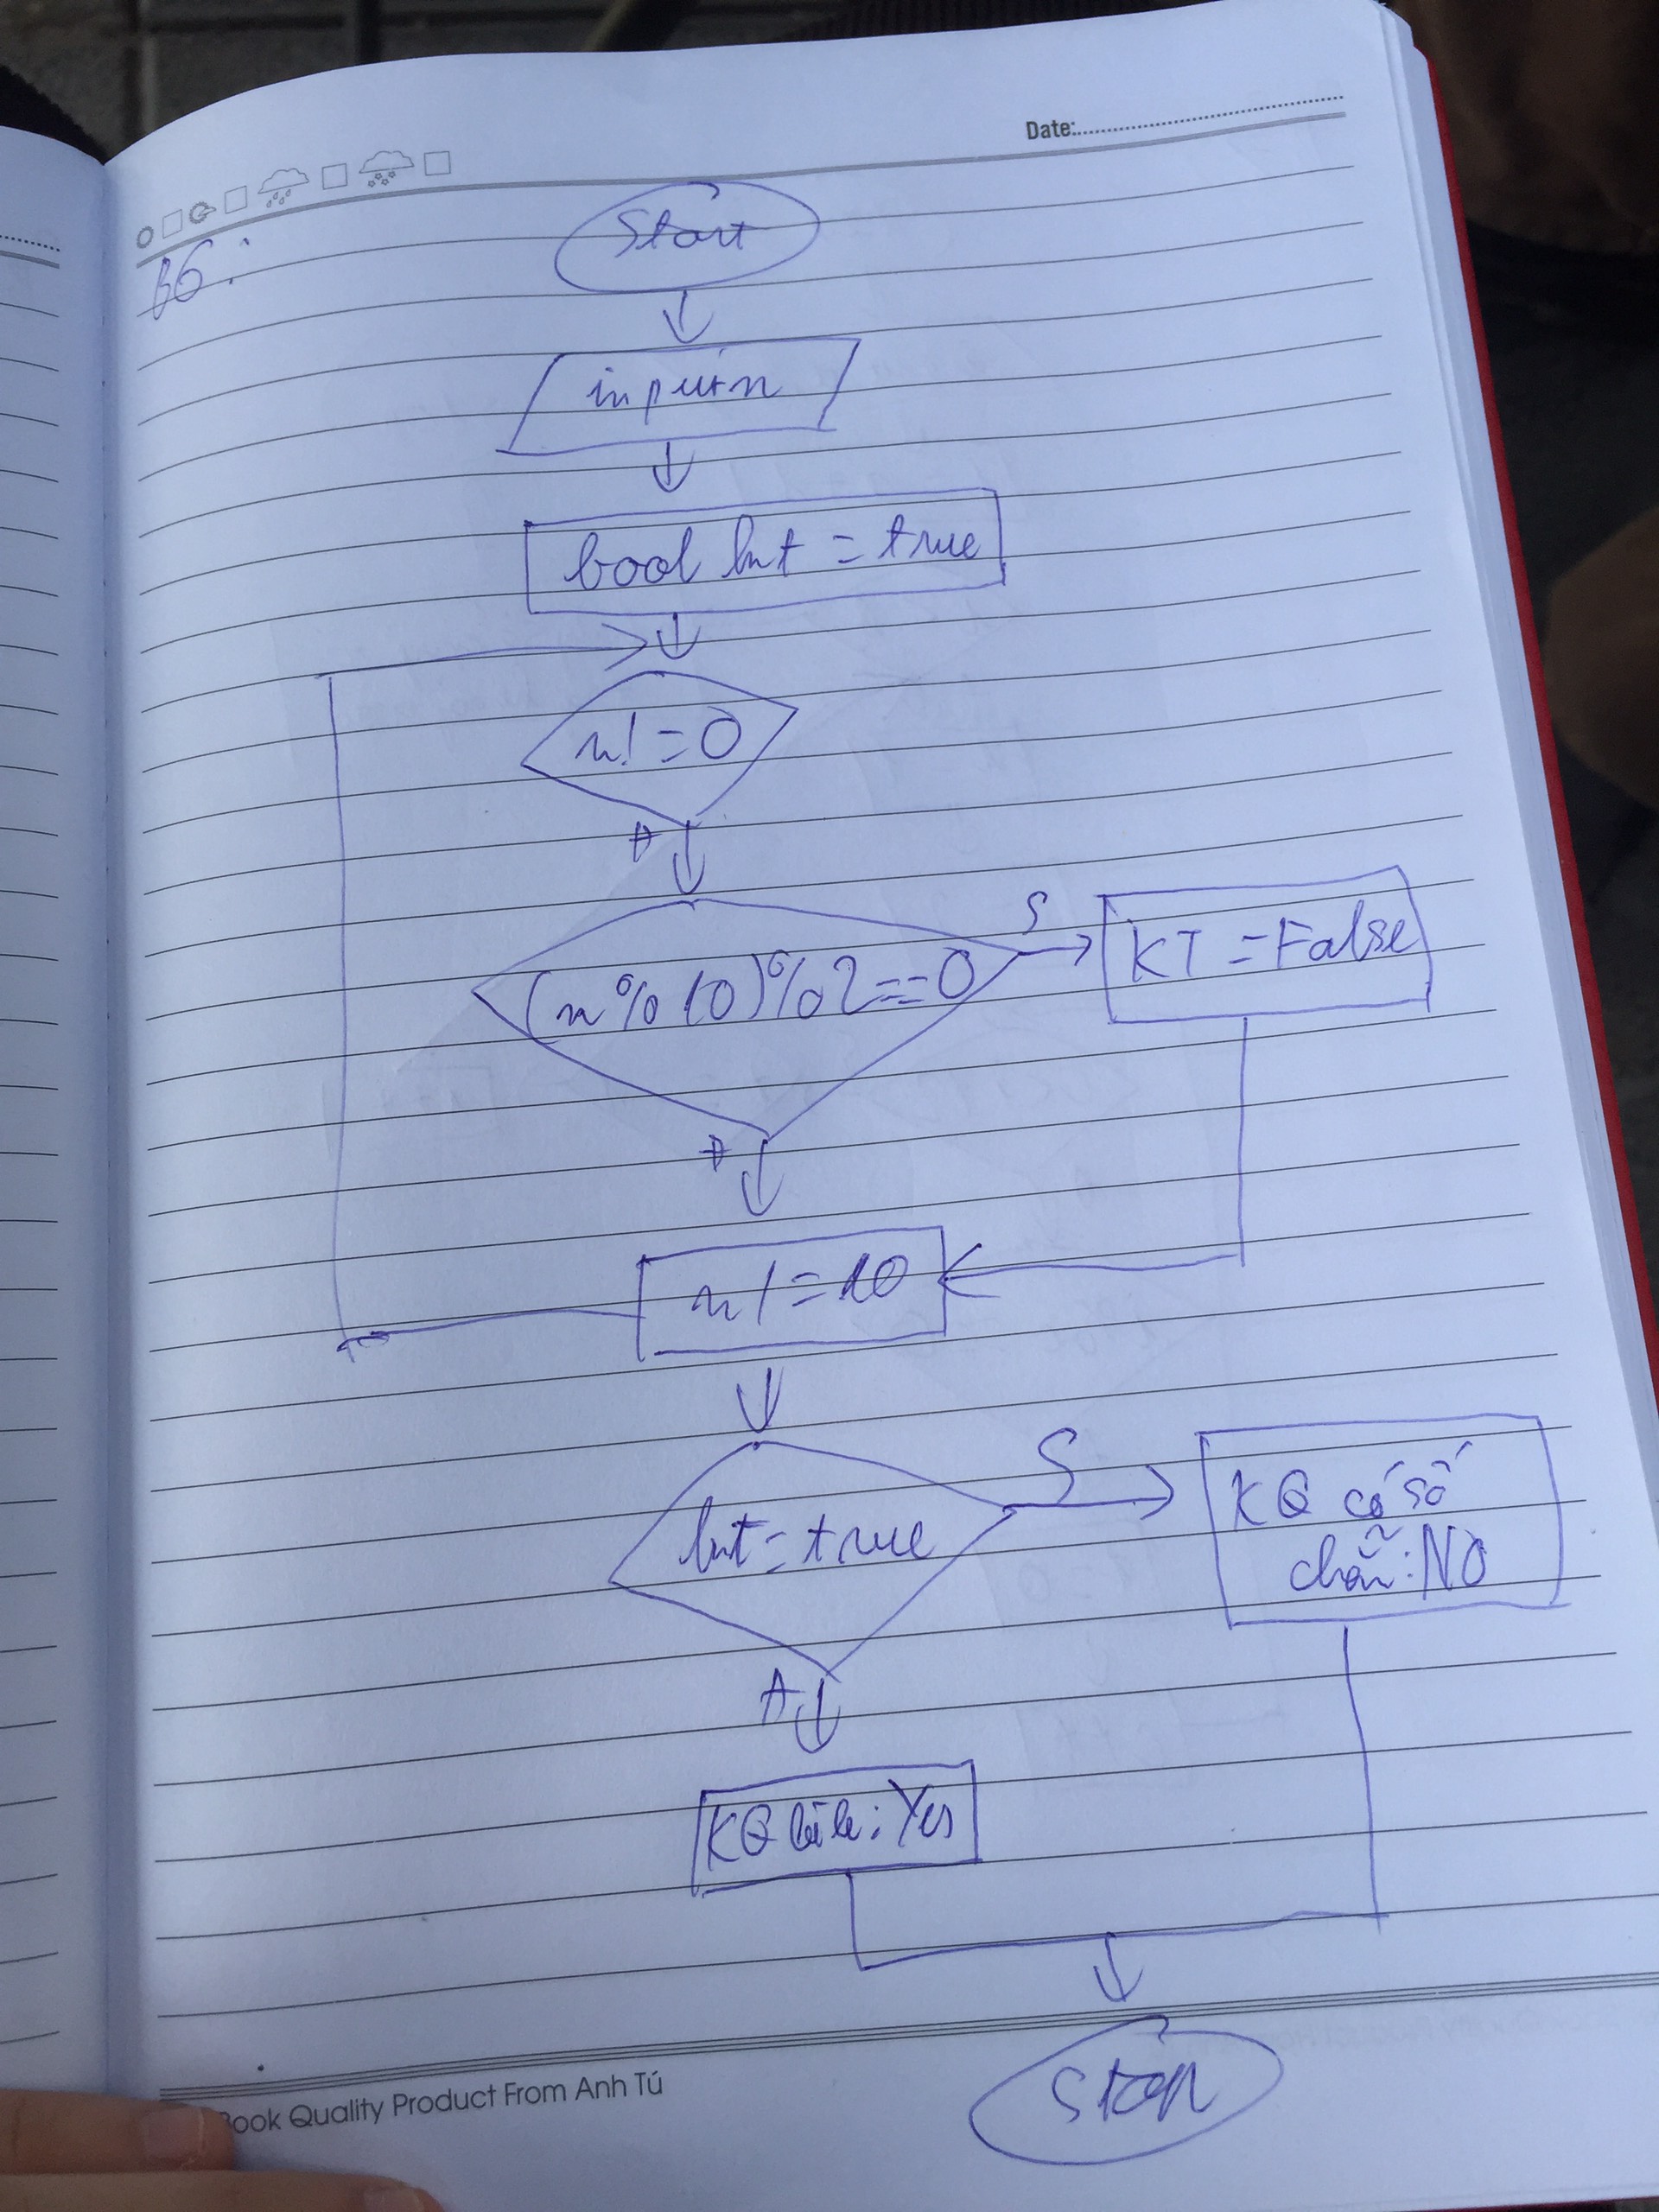 Date:
B6:
Start
input n
bool kt = true
n!=0
Đ
(n%10)%2==0
S
KT = False
Đ
n/=10
kt=true
S
KQ có số
chẵn: NO
Đ
KQ : Yes
Stop
Book Quality Product From Anh Tú